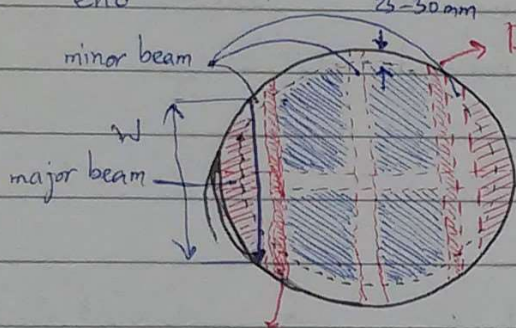 25-50mm
minor beam
W
major beam